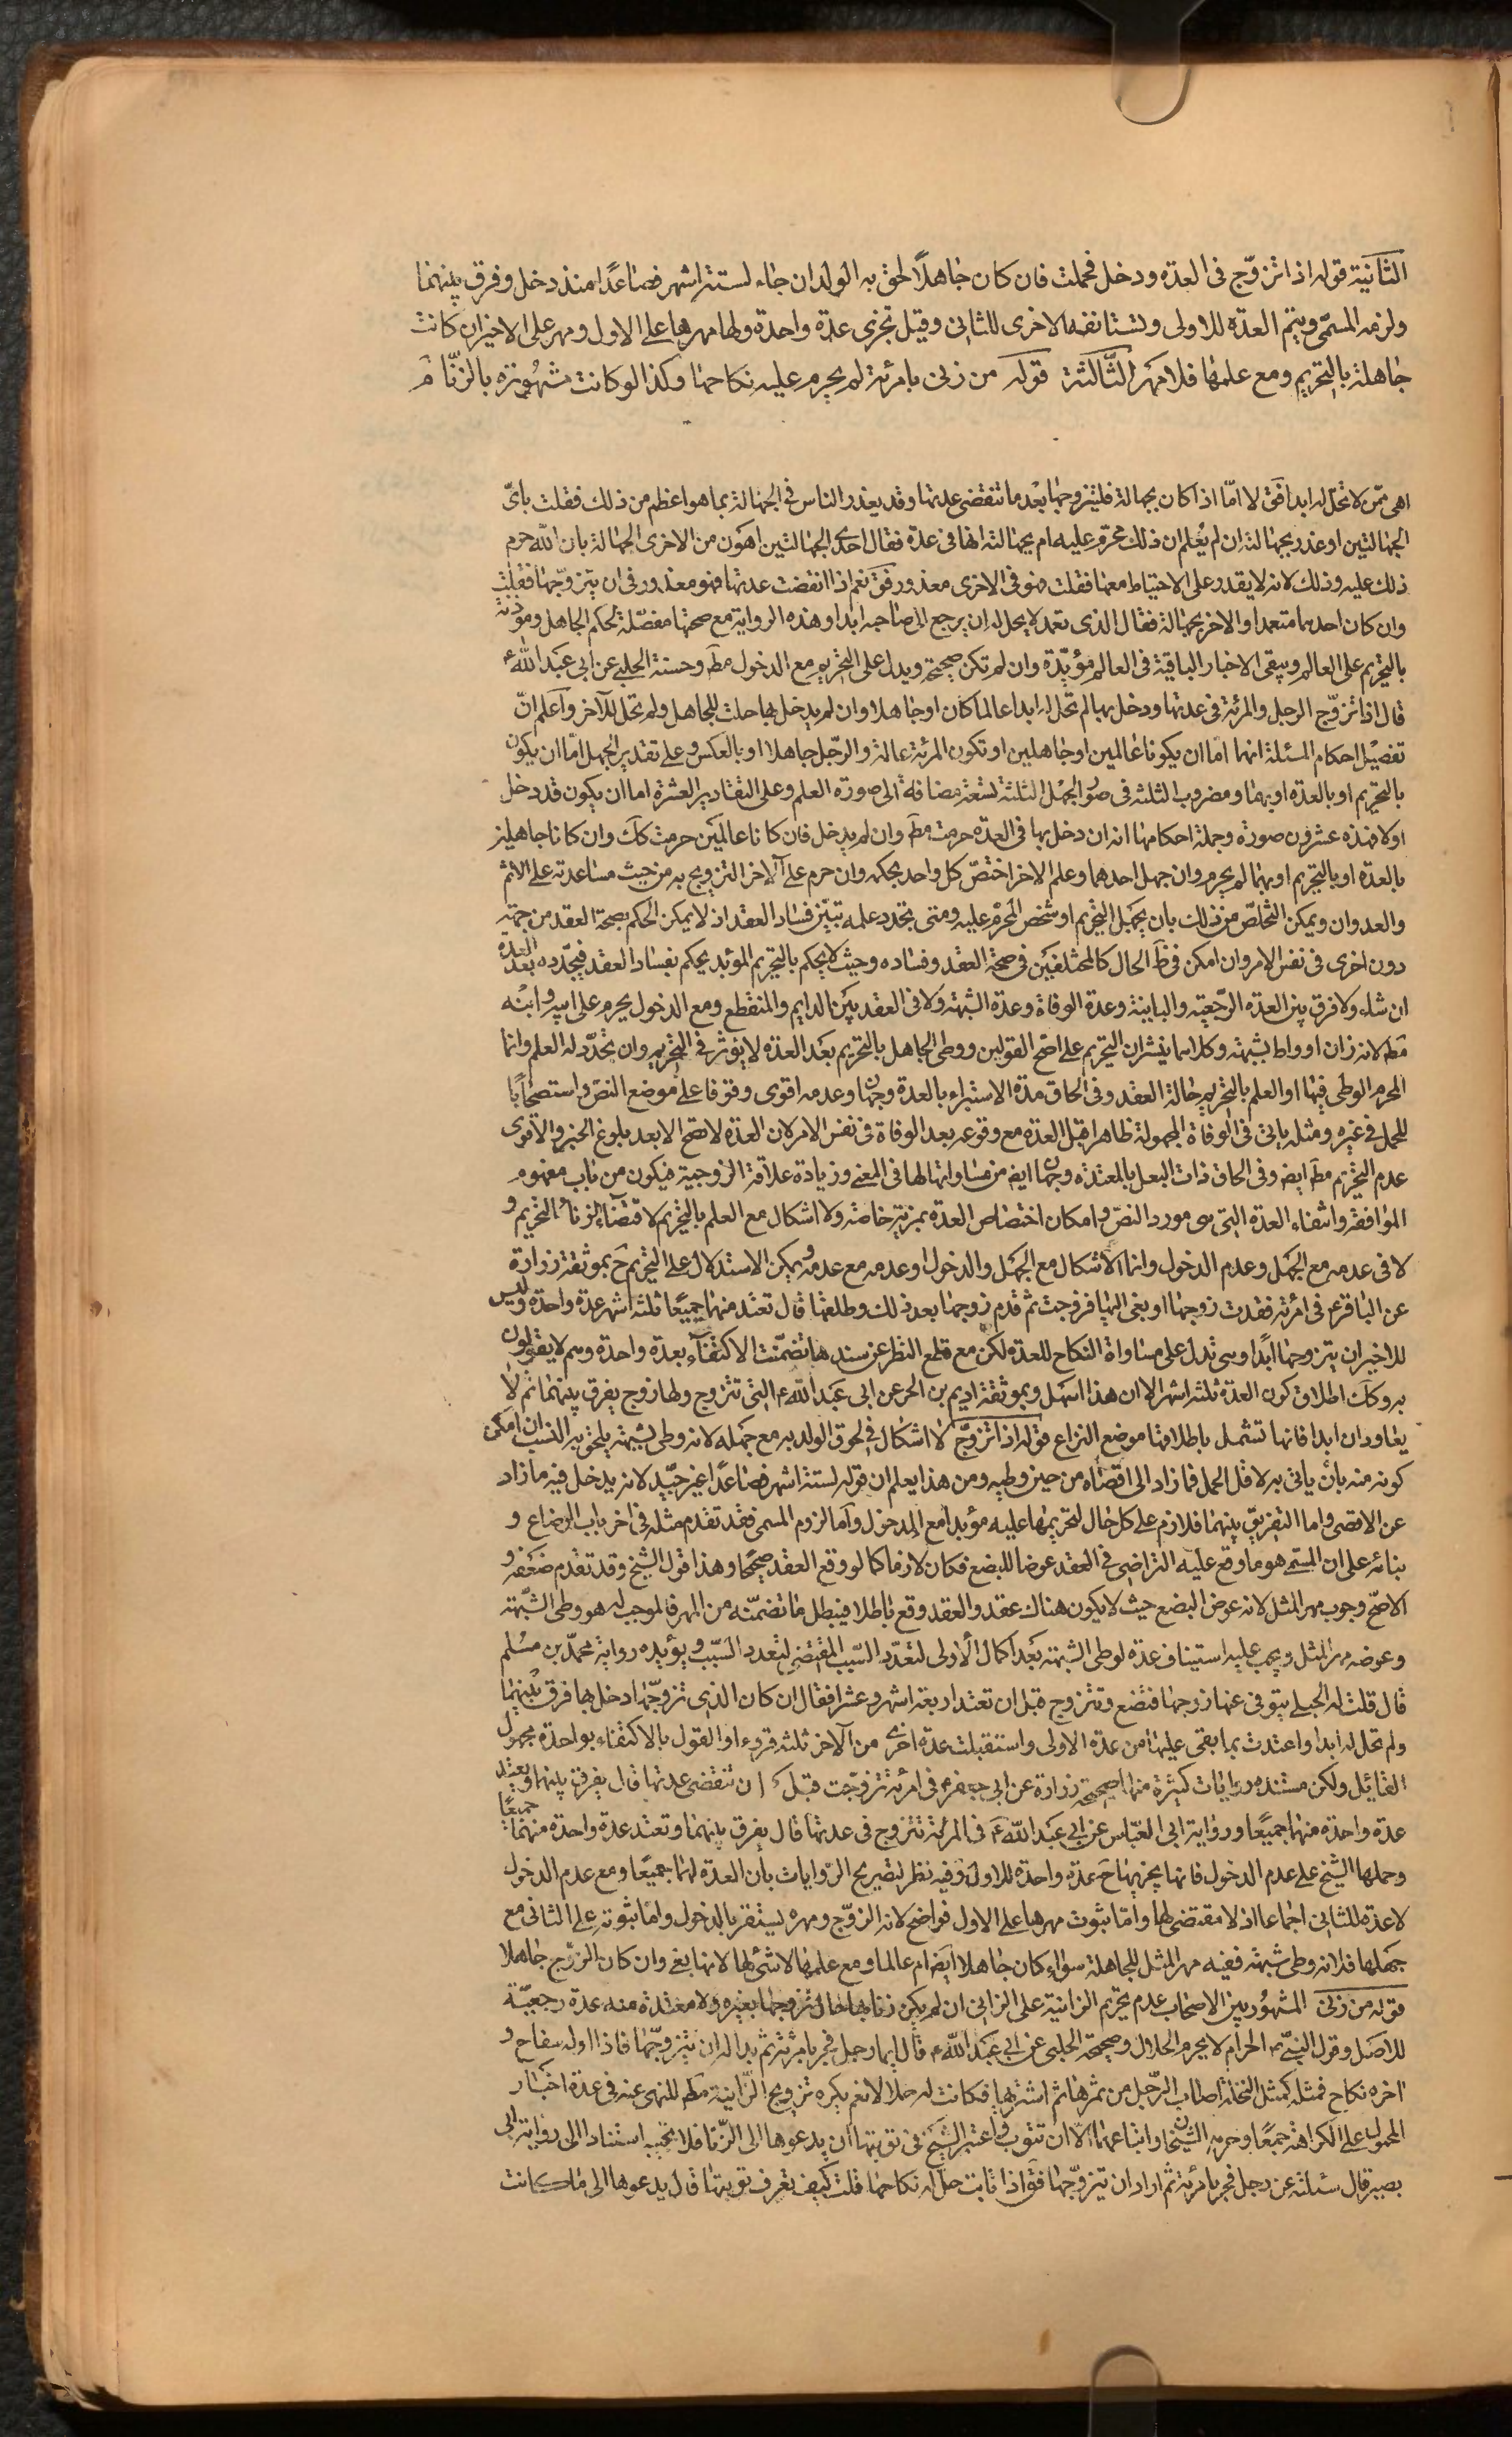 الثانية قوله اذا تزوّج فى العدّة ودخل فحملت فان كان جاهلًا لحق به الولد ان جاء لستة اشهر فصاعدًا منذ دخل وفرق بينهما
ولزمه المسمّى ويتم العدّة للاولى وتستانف الاخرى للثانى وقيل تجزى عدّة واحدة ولها مهرها على الاول ومهر على الاخير ان كانت
جاهلة بالتحريم ومع علمها فلا مهر الثّالثة قوله من زنى بامرئة لم يحرم عليه نكاحها وكذا لو كانت مشهورة بالزّنا م
اهى ممّن لا تحلّ له ابدا فق لا امّا اذا كان بجهالة فليتزوجها بعد ما تنقضى عدتها وقد يعذر الناس فى الجهالة بما هو اعظم من ذلك فقلت باىّ
الجهالتين اوعذر بجهالته ان لم يعلم ان ذلك محرّم عليه ام بجهالته انها فى عدة فقال احدى الجهالتين اهون من الاخرى الجهالة بان اللّه حرم
ذلك عليه وذلك لانه لا يقدر على الاحتياط معها فقلت فهو فى الاخرى معذور فق نعم اذا انقضت عدتها فهو معذور فى ان يتزوّجها فقلت
وان كان احدهما متعمدا والاخر بجهالة فقال الذى تعمد لا يحل له ان يرجع الى صاحبه ابدا وهذه الرواية مع صحتها مفصّلة لحكم الجاهل ومؤذنة
بالتحريم على العالم ويبقى الاخبار الباقية فى العالم مؤيّدة وان لم تكن صحيحة ويدل على التحريم مع الدخول مط وحسنة الحلبى عن ابى عبد اللّه ع
قال اذا تزوّج الرجل والمرئة فى عدتها ودخل بها لم تحل له ابدا عالما كان او جاهلا وان لم يدخل بها حلت للجاهل ولم تحل للآخر واعلم انّ
تفصيل احكام المسئلة انهما اما ان يكونا عالمين او جاهلين او تكون المرئة عالمة والرّجل جاهلا او بالعكس وعلى تقدير الجهل اما ان يكون
بالتحريم او بالعدّة او بهما ومضروب الثلثة فى صور الجهل الثلثة تسعة مضافة الى صورة العلم وعلى التقادير العشرة اما ان يكون قد دخل
اولا فهذه عشرون صورة وجملة احكامها انه ان دخل بها فى العدّة حرمت مط وان لم يدخل فان كانا عالمين حرمت كك وان كانا جاهلين
بالعدة او بالتحريم او بهما لم يحرم وان جهل احدهما وعلم الاخر اختصّ كل واحد بحكمه وان حرم على الآخر التزويج به من حيث مساعدته على الاثم
والعدوان ويمكن التخلّص من ذلك بان يجهل التحريم او شخص المحرّم عليه ومتى تجدد علمه تبيّن فساد العقد اذ لا يمكن الحكم بصحة العقد من جهة
دون اخرى فى نفس الامر وان امكن فى ظ الحال كالمختلفين فى صحة العقد وفساده وحيث لا يحكم بالتحريم المؤبد يحكم بفساد العقد فيجدّده بعد العدة
ان شاء ولا فرق بين العدّة الرّجعية والباينة وعدة الوفاة وعدة الشبهة ولا فى العقد بين الدايم والمنقطع ومع الدخول يحرم على ابيه وابنه
مط لانه زان او واط بشبهة وكلاهما ينشران التحريم على اصح القولين ووطى الجاهل بالتحريم بعد العدّة لا يؤثر فى التحريم وان تجدّد له العلم وانما
المحرم الوطى فيها او العلم بالتحريم حالة العقد وفى الحاق مدّة الاستبراء بالعدة وجهان وعدمه اقوى وقوفا على موضع النصّ واستصحابًا
للحل فى غيره ومثله ياتى فى الوفاة المجهولة ظاهرا قبل العدّة مع وقوعه بعد الوفاة فى نفس الامر لان العدّة لا تصحّ الا بعد بلوغ الخبر والاقوى
عدم التحريم مط ايض وفى الحاق ذات البعل بالمعتدة وجهان ايض من مساواتها لها فى المعنى وزيادة علاقة الزوجية فيكون من باب مفهوم
الموافقة وانتفاء العدّة التى هى مورد النصّ وامكان اختصاص العدّة بمزية خاصة ولا اشكال مع العلم بالتحريم لاقتضاء الزنا التحريم و
لا فى عدمه مع الجهل وعدم الدخول وانما الاشكال مع الجهل والدخول او عدمه مع عدمه ويمكن الاستدلال على التحريم ح بموثقة زرارة
عن الباقر ع فى امرئة فقدت زوجها او نعى اليها فزوجت ثم قدم زوجها بعد ذلك وطلقها قال تعتد منهما جميعًا ثلثة اشهر عدة واحدة وليس
للاخير ان يتزوجها ابدًا وهى تدل على مساواة النكاح للعدّة لكن مع قطع النظر عن سندها تضمّنت الاكتفاء بعدة واحدة وهم لا يقولون
به وكك اطلاق كون العدّة ثلثة اشهر الا ان هذا اسهل وبموثقة اديم بن الحر عن ابى عبد اللّه ع التى تتزوج ولها زوج يفرق بينهما ثم لا
يعاودان ابدا فانها تشمل باطلاقها موضع النزاع قوله اذا تزوّج لا اشكال فى لحوق الولد به مع جهله لانه وطى بشبهة يلحق به النسب ان امكن
كونه منه بان ياتى به لاقل الحمل فما زاد الى اقصاه من حين وطيه ومن هذا يعلم ان قوله لستة اشهر فصاعدًا غير جيّد لانه يدخل فيه ما زاد
عن الاقصى واما التفريق بينهما فلازم على كل حال لتحريمها عليه مؤبدا مع الدخول واما لزوم المسمى فقد تقدم مثله فى اخر باب الرضاع و
بنائه على ان المسمّى هو ما وقع عليه التراضى فى العقد عوضا للبضع فكان لازما كما لو وقع العقد صحيحًا وهذا قول الشيخ وقد تقدم ضعفه و
الاصحّ وجوب مهر المثل لانه عوض البضع حيث لا يكون هناك عقد والعقد وقع باطلا فيبطل ما تضمّنه من المهر فالموجب له هو وطى الشّبهة
وعوضه مهر المثل ويجب عليه استيناف عدّة لوطى الشبهة بعد اكمال الاولى لتعدّد السّبب المقتضى لتعدد المسبّب ويؤيده رواية محمّد بن مسلم
قال قلت له الحبلى يتوفى عنها زوجها فتضع وتتزوج قبل ان تعتد اربعة اشهر وعشرا فقال ان كان الذى تزوّجها دخل بها فرق بينهما
ولم تحل له ابدا واعتدت بما بقى عليها من عدّة الاولى واستقبلت عدّة اخرى من الآخر ثلثة قروء او القول بالاكتفاء بواحدة مجهول
القائل ولكن مستنده روايات كثيرة منها صحيحة زرارة عن ابى جعفر ع فى امرئة تزوجت قبل ان تنقضى عدتها قال يفرق بينهما وتعتد
عدّة واحدة منهما جميعًا ورواية ابى العبّاس عن ابى عبد اللّه ع فى المرئة تتزوج فى عدتها قال يفرق بينهما وتعتد عدّة واحدة منهما جميعًا
وحملها الشيخ على عدم الدخول فانها يجزيها ح عدّة واحدة للاول وفيه نظر لتصريح الروايات بان العدّة لهما جميعًا ومع عدم الدخول
لا عدّة للثانى اجماعا اذ لا مقتضى لها وامّا ثبوت مهرها على الاول فواضح لانه الزوّج ومهره يستقر بالدخول واما ثبوته على الثانى مع
جهلها فلانه وطى شبهة ففيه مهر المثل للجاهلة سواء كان جاهلا ايضا ام عالما ومع علمها لا شئ لها لانها بغى وان كان الزوّج جاهلا
قوله من زنى المشهور بين الاصحاب عدم تحريم الزانية على الزانى ان لم يكن زنا بها حال تزوجها بغيره ولا معتدة منه عدة رجعيّة
للاصل وقول النبىّ ص الحرام لا يحرم الحلال وصحيحة الحلبى عن ابى عبد اللّه ع قال ايما رجل فجر بامرئة ثم بدا له ان يتزوّجها فاذا اوله سفاح و
اخره نكاح فمثله كمثل النخلة اصاب الرّجل من ثمرها ثم اشتريها فكانت له حلالا نعم يكره تزويج الزّانية مط للنهى عنه فى عدة اخبار
المحمول على الكراهة جمعًا وحرمه الشيخان واتباعهما الا ان تتوب واعتبر الشيخ فى توبتها ان يدعوها الى الزّنا فلا تجيبه استنادا الى رواية ابى
بصير قال سئلته عن رجل فجر بامرئة ثم اراد ان يتزوّجها فق اذا تابت حل له نكاحها قلت كيف تعرف توبتها قال يدعوها الى ما كانت